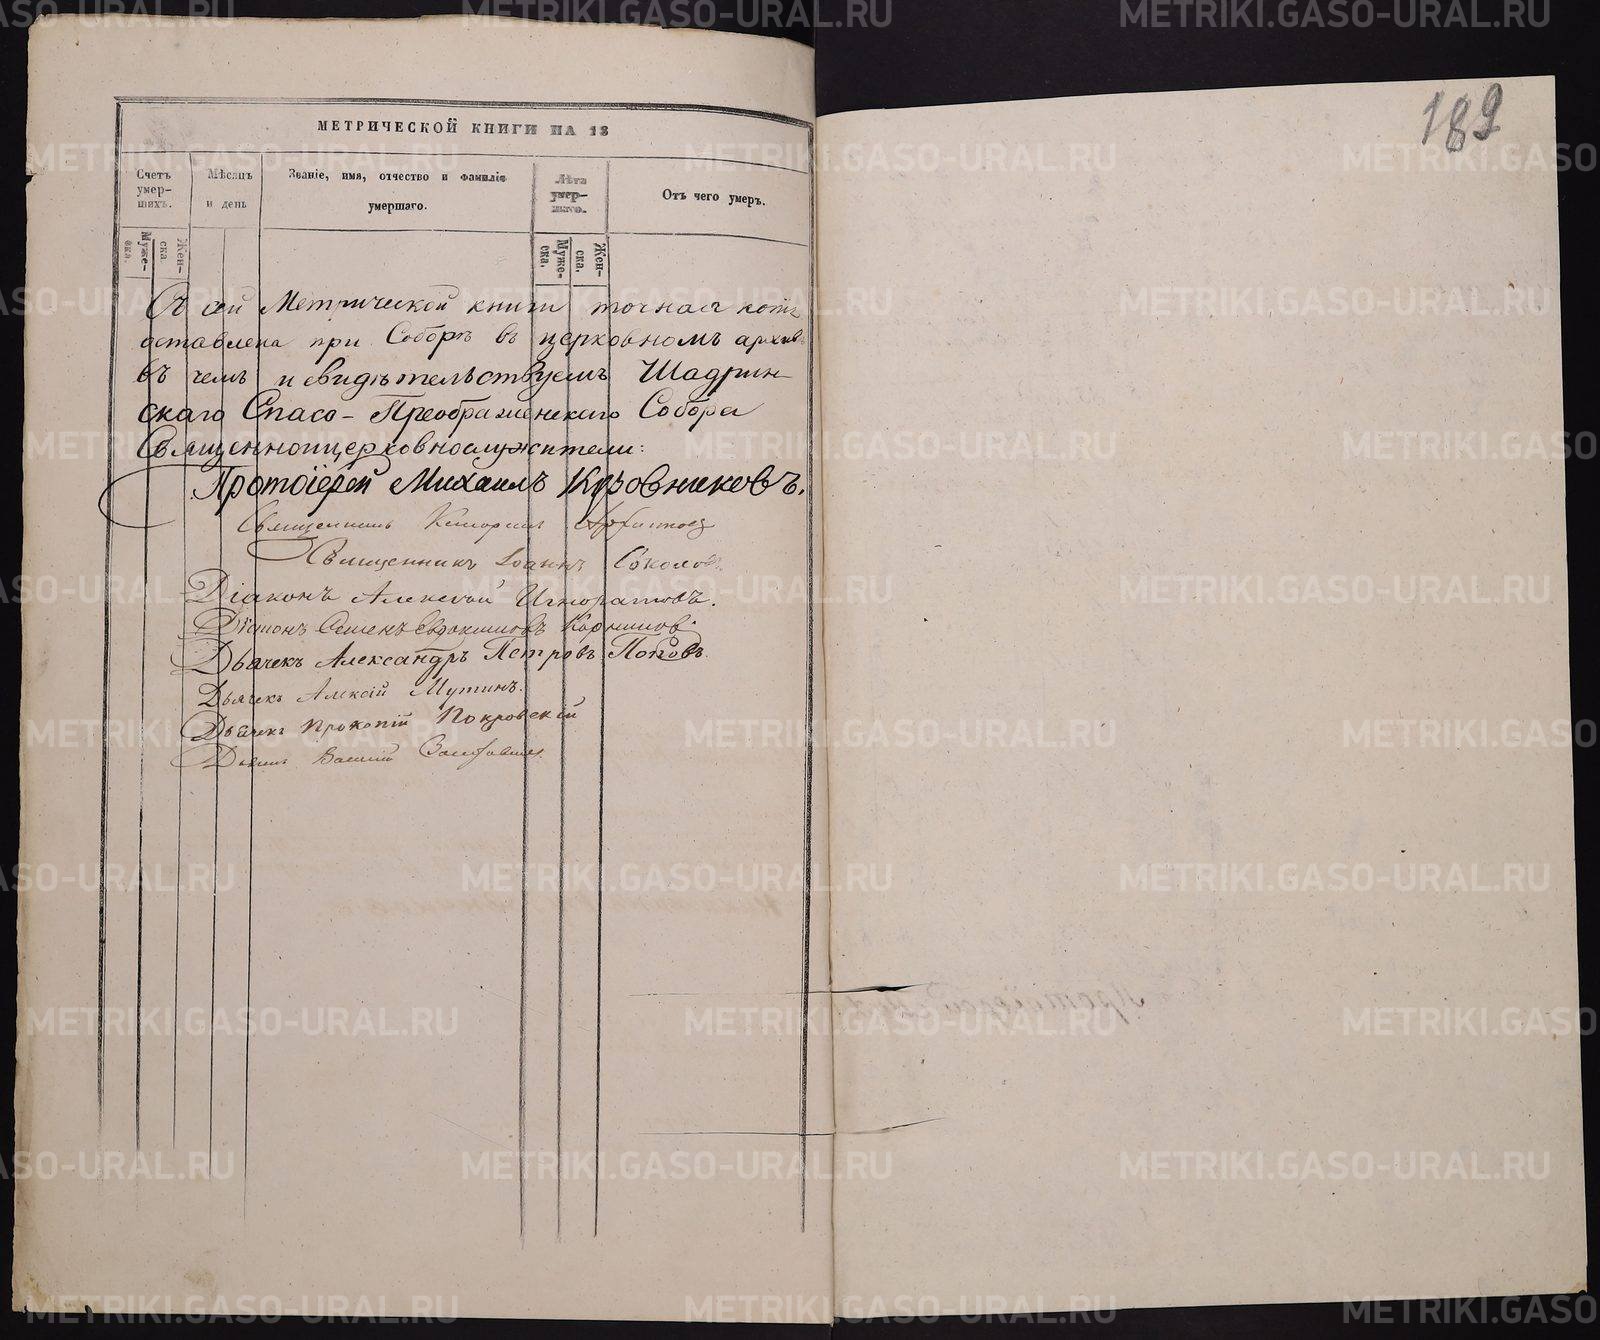 МЕТРИЧЕСКОЙ КНИГИ НА 18
Счетъ умер-шихъ.
Мѣсяцъ и день
Званіе, имя, отчество и фамилія умершаго.
Лѣта умер-шаго.
Отъ чего умеръ.
Муже-ска.
Жен-ска.
Муже-ска.
Жен-ска.
Съ сей Метрической книги точная копія
оставлена при Соборѣ въ церковномъ архивѣ
въ чемъ и свидѣтельствуемъ Шадрин
скаго Спасо-Преображенскаго Собора
Священноцерковнослужители:
Протоіерей Михаилъ Кузовниковъ.
Священникъ
Священникъ Іоаннъ Соколов
Діаконъ Алексѣй Игноратовъ.
Діаконъ Семенъ Евдокимовъ
Дьячекъ Александръ Петровъ Поповъ.
Дьячекъ Алексій Мутинъ.
Дьячекъ Прокопій Покровскій
Василій
189
METRIKI.GASO-URAL.RU